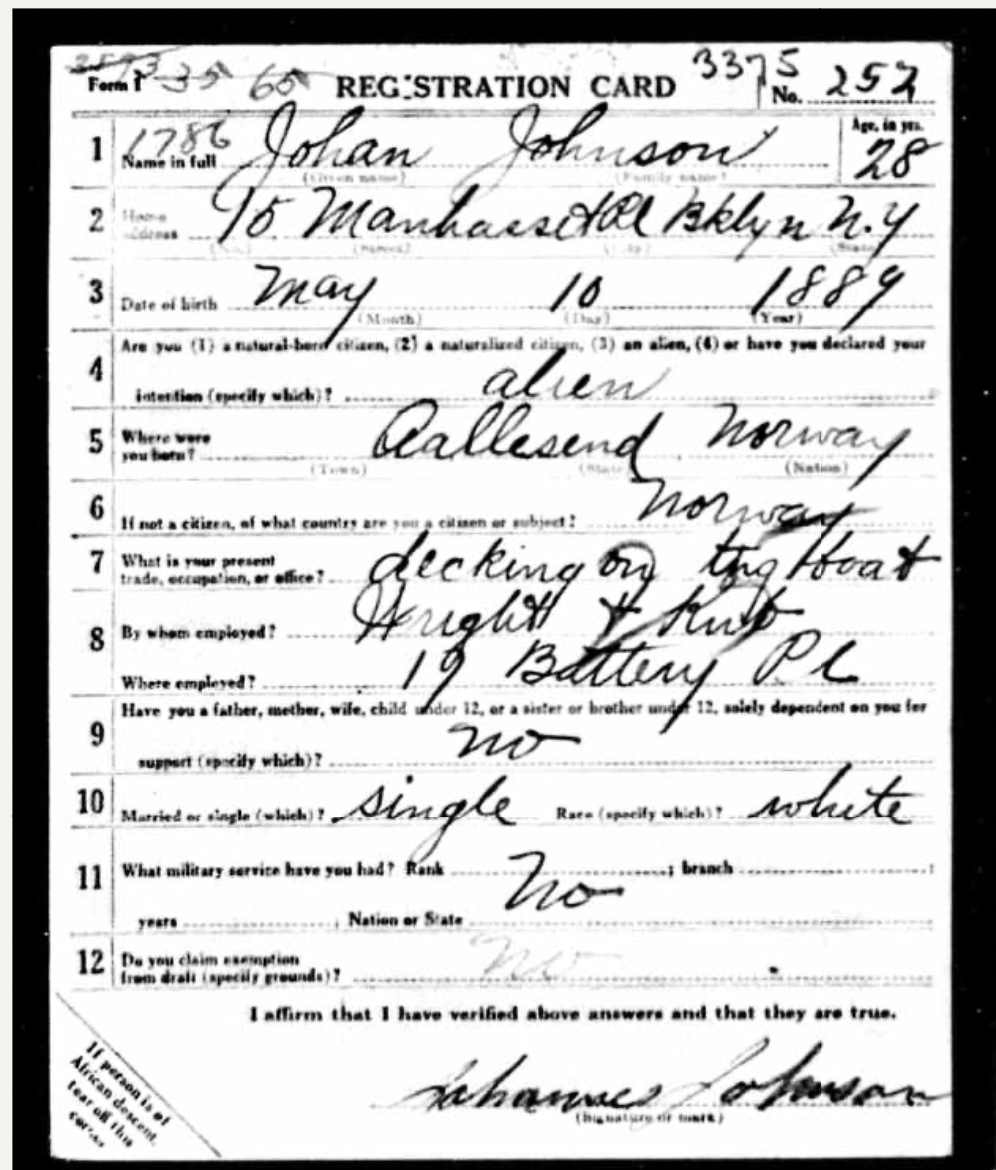 Form 1 35 65 REGISTRATION CARD 3375 No. 252
1786
1 Name in full Johan Johnson Age, in yrs. 28
(Given name) (Family name)
2 Home address 95 Manhasset Pl Bklyn N.Y
(No.) (Street) (City) (State)
3 Date of birth May 10 1889
(Month) (Day) (Year)
Are you (1) a natural-born citizen, (2) a naturalized citizen, (3) an alien, (4) or have you declared your
4 intention (specify which)? alien
5 Where were you born? Aallesend Norway
(Town) (State) (Nation)
6 If not a citizen, of what country are you a citizen or subject? Norway
7 What is your present trade, occupation, or office? decking on tug boat
8 By whom employed? Wright &
Where employed? 19 Battery Pl
Have you a father, mother, wife, child under 12, or a sister or brother under 12, solely dependent on you for
9 support (specify which)? no
10 Married or single (which)? single Race (specify which)? white
11 What military service have you had? Rank No ; branch ;
years ; Nation or State
12 Do you claim exemption from draft (specify grounds)? No
I affirm that I have verified above answers and that they are true.
Johannes Johnson
(Signature or mark)
If person is of
African descent,
tear off this
corner